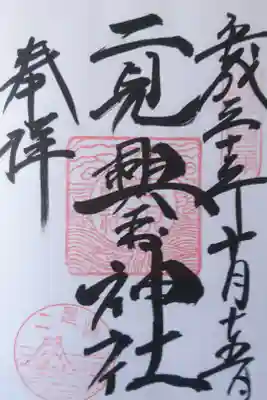 平成三十年十月十五日
二見興玉神社
奉拝